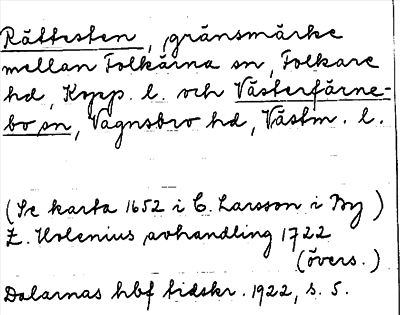 Råttesten, gränsmärke
mellan Folkärna sn, Folkare
hd, Kopp. l. och Västerfärne-
bo sn, Vagnsbro hd, Västm. l.
(Se karta 1652 i C. Larsson i By)
Z. Holenius avhandling 1722
(övers.)
Dalarnas hbf tidskr. 1922, s. 5.